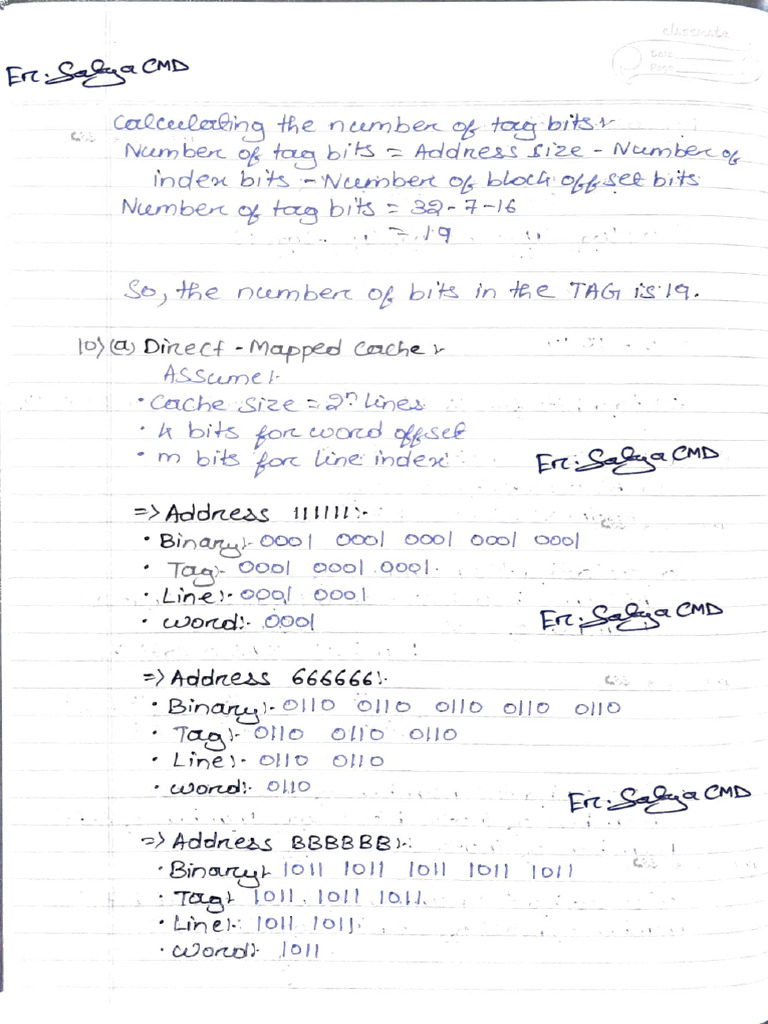 classmate
Date
Page
Er. Satya CMD
Calculating the number of tag bits:-
Number of tag bits = Address size - Number of
index bits - Number of block offset bits
Number of tag bits = 32-7-16
= 19
So, the number of bits in the TAG is 19.
10) (a) Direct - Mapped Cache:-
Assume:-
• Cache size = 2ⁿ lines
• k bits for word offset
• m bits for line index
Er. Satya CMD
=> Address 111111:-
• Binary:- 0001 0001 0001 0001 0001
• Tag:- 0001 0001 0001.
• Line:- 0001 0001
• Word:- 0001
Er. Satya CMD
=> Address 666666:-
• Binary:- 0110 0110 0110 0110 0110
• Tag:- 0110 0110 0110
• Line:- 0110 0110
• Word:- 0110
Er. Satya CMD
=> Address BBBBBB:-
• Binary:- 1011 1011 1011 1011 1011
• Tag:- 1011 1011 1011
• Line:- 1011 1011
• Word:- 1011